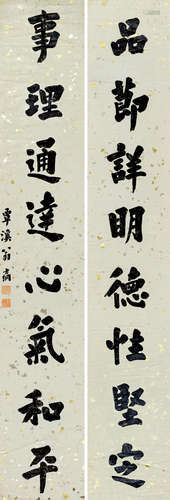 品節詳明德性堅定
事理通達心氣和平
覃溪翁方綱